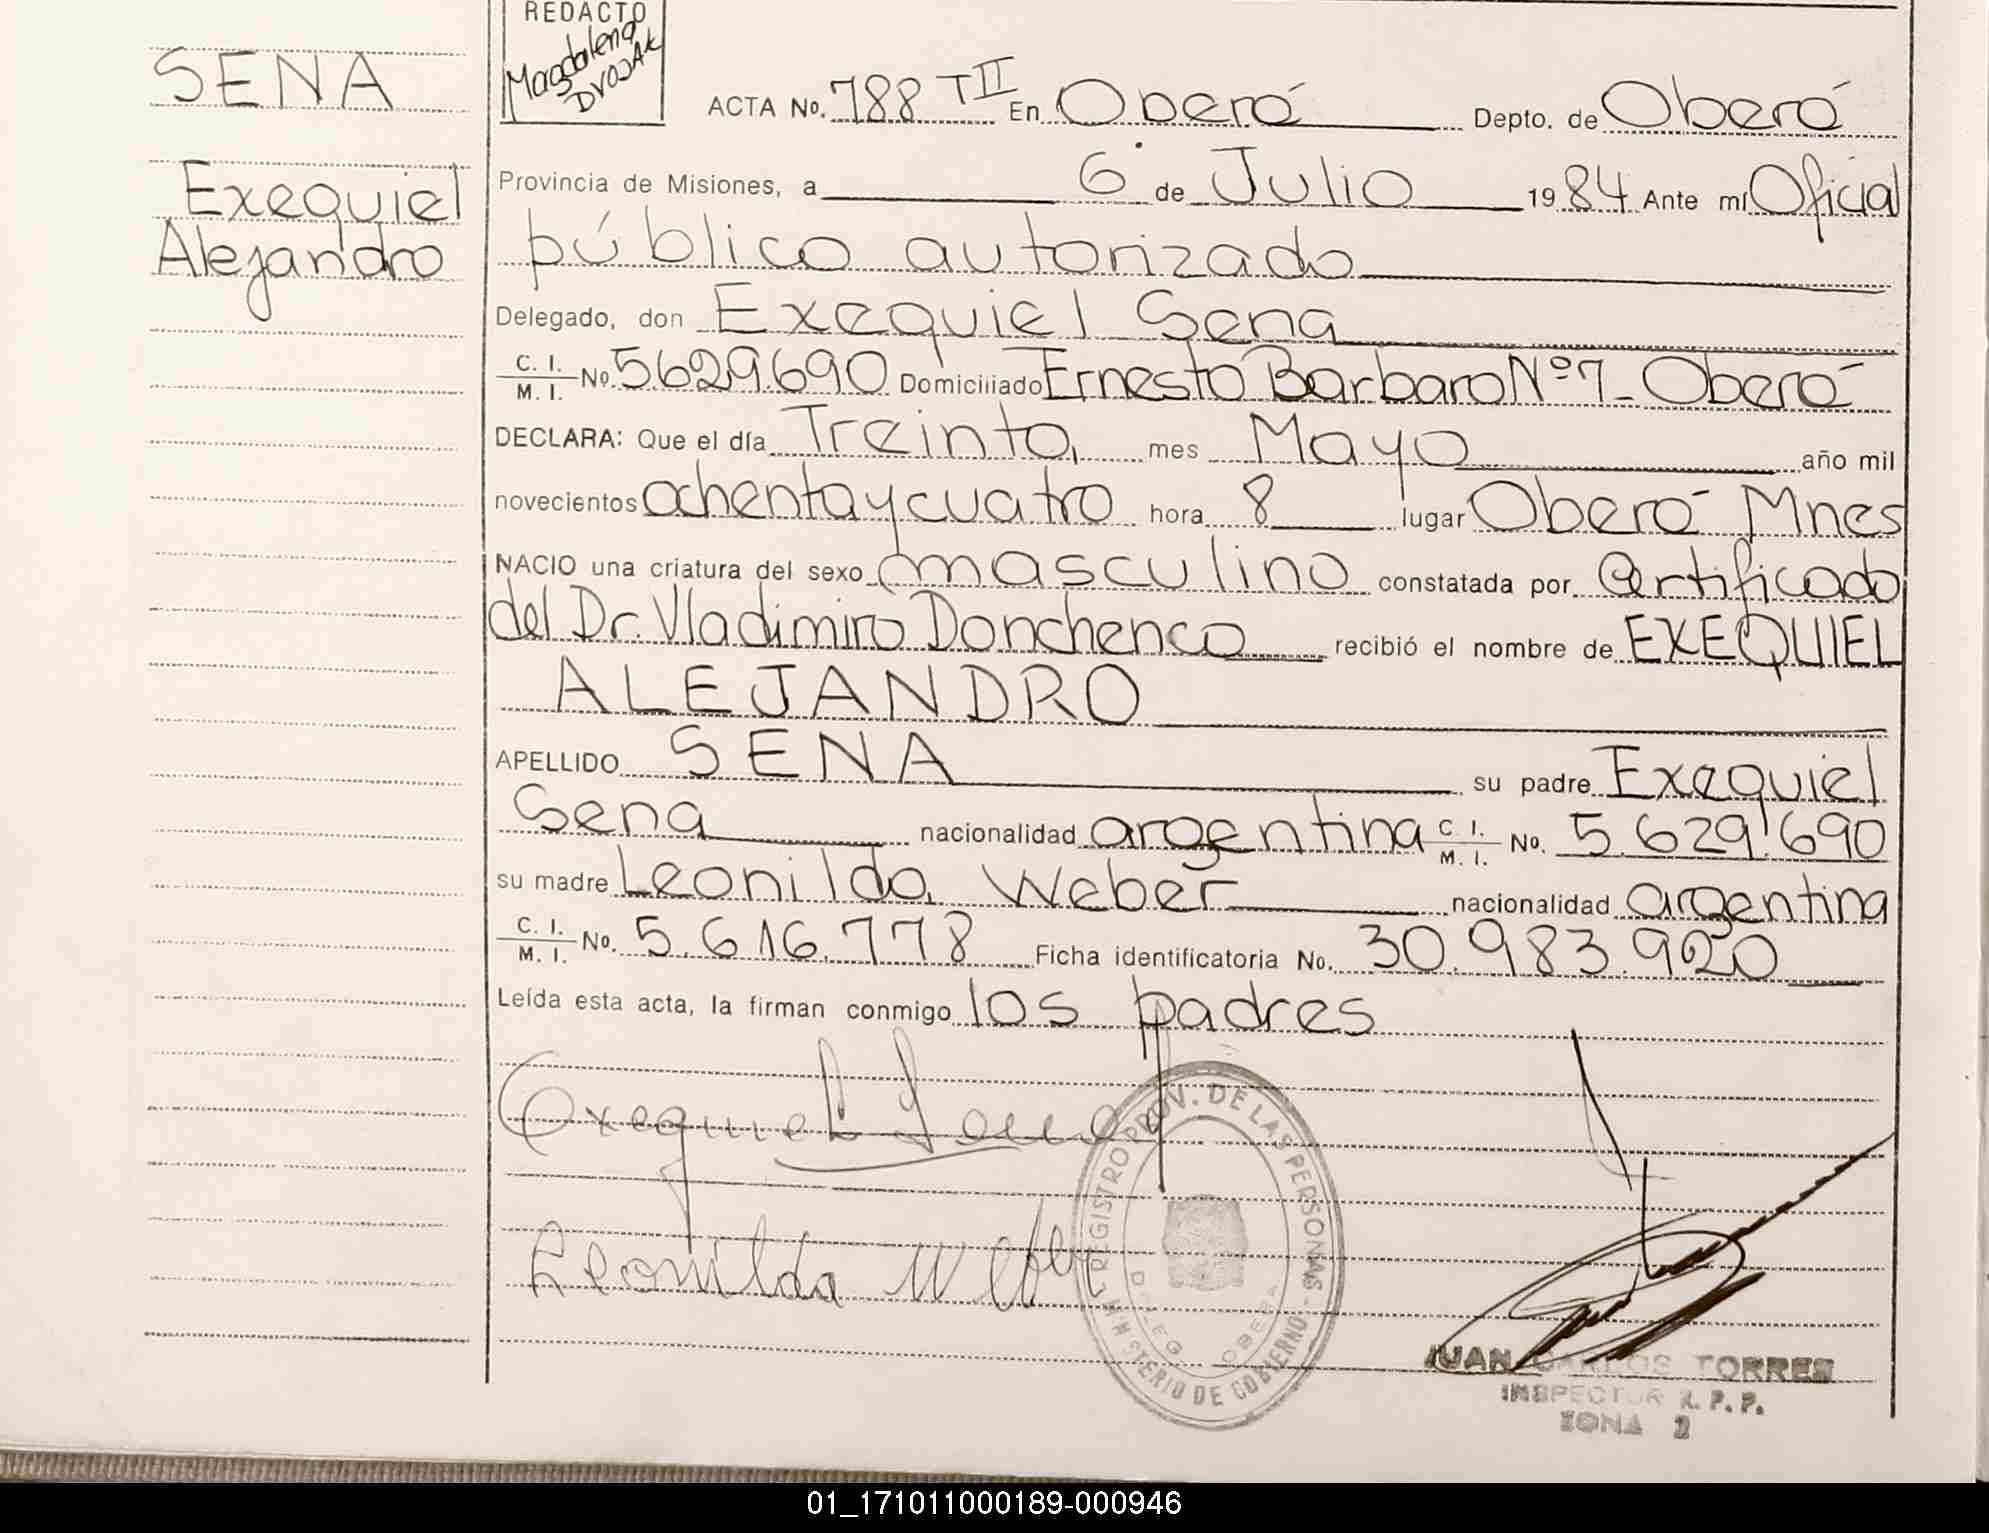 REDACTO
Magdalena
DVOJAK
SENA
Exequiel
Alejandro
ACTA No. 788 TII En Oberá Depto. de Oberá
Provincia de Misiones, a 6 de Julio 1984 Ante mí Oficial
público autorizado
Delegado, don Exequiel Sena
C. I. / M. I. No. 5629.690 Domiciliado Ernesto Barbaro Nº 7 - Oberá
DECLARA: Que el día Treinta mes Mayo año mil
novecientos ochenta y cuatro hora 8 lugar Oberá Mnes
NACIO una criatura del sexo masculino constatada por Certificado
del Dr. Vladimiro Donchenco recibió el nombre de EXEQUIEL
ALEJANDRO
APELLIDO SENA su padre Exequiel
Sena nacionalidad argentina C. I. / M. I. No. 5.629.690
su madre Leonilda Weber nacionalidad argentina
C. I. / M. I. No. 5.616.778 Ficha identificatoria No. 30.983.920
Leída esta acta, la firman conmigo los padres
Exequiel Sena
Leonilda Weber
REGISTRO PROV. DE LAS PERSONAS - MINISTERIO DE GOBIERNO
DELEG OBERA
JUAN CARLOS TORRES
INSPECTOR R. P. P.
ZONA 2
01_171011000189-000946